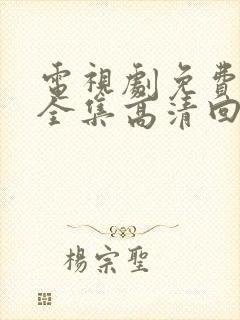 電視劇免費
全集高清回
楊宗聖